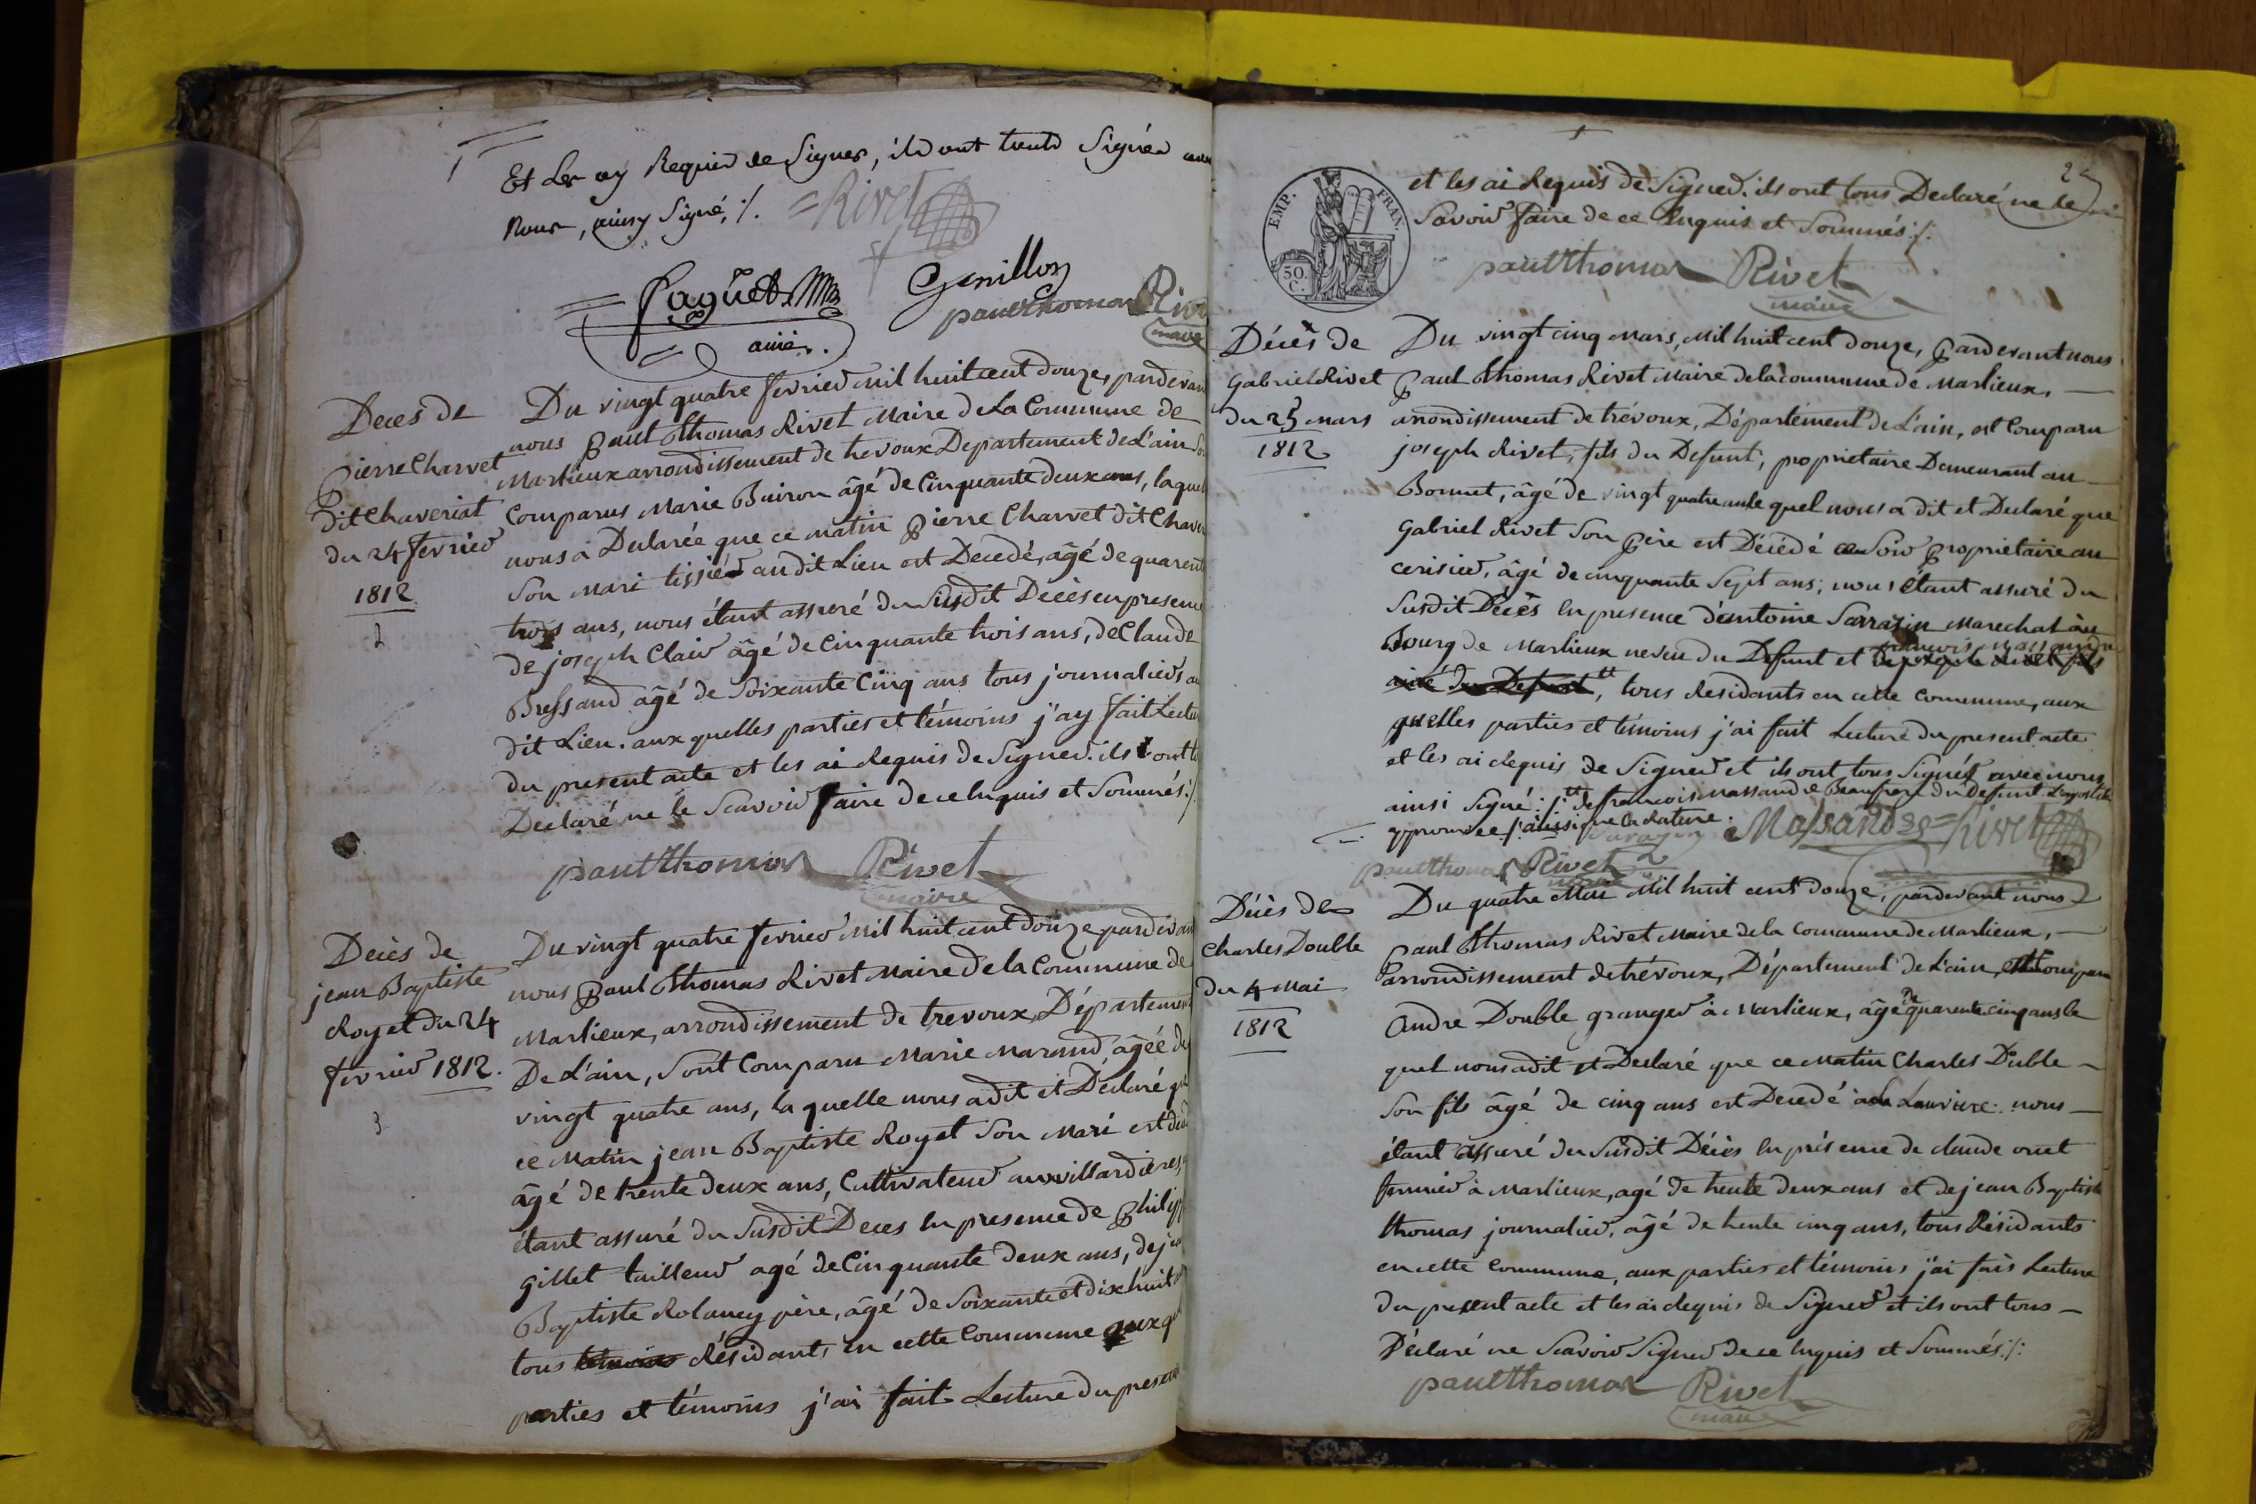 Et Les ay Requier de Signer, ils ont touts Signés avec
Nous, ainsy Signé, ./.
Rivet
Paquet
ainé.
Genillon
paul thomas Rivet
maire
Deces de
Pierre Charvet
dit Chaveriat
du 24 fevrier
1812
2
Du vingt quatre fevrier mil huit cent douze, pardevant
nous Paul Thomas Rivet Maire de La Commune de
Marlieux arrondissement de trevoux Departement de L'ain
Comparus Marie Buiron âgé de Cinquante deux ans, laquelle
nous à Declarée que ce matin Pierre Charvet dit Chaver
Son Mari tissier au dit Lieu est Decedé, âgé de quarente
trois ans, nous étant assuré du Susdit Décès en presence
de joseph Clair âgé de Cinquante trois ans, de Claude
Bressand âgé de Soixante Cinq ans tous journaliers au
dit Lieu. aux quelles parties et témoins j'ay fait Lecture
du present acte et les ai Requis de Signer. ils ont
Declaré ne le Scavoir faire de ce Inquis et Sommés ./.
paul thomas Rivet
maire
Décès de
jean Baptiste
Royet du 24
fevrier 1812.
3
Du vingt quatre fevrier Mil huit cent douze pardevant
nous Paul Thomas Rivet Maire de la Commune de
Marlieux, arrondissement de trevoux, Département
De L'ain, Sont Comparu Marie Marand, âgée de
vingt quatre ans, la quelle nous a dit et Declaré que
ce Matin jean Baptiste Royet Son Mari est
âgé de trente deux ans, Cultivateur aux villardieres,
étant assuré du Susdit Deces en presence de Philipp
Gillet tailleur âgé de Cinquante deux ans, de jean
Baptiste Rolancy père, âgé de Soixante et dix huit
tous témoins Résidants en cette Commune aux
parties et témoins j'ai fait Lecture du present
25
EMP. FRAN.
50. C.
et les ai Requis de Signer. ils ont tous Declaré ne le
Savoir faire de ce Inquis et Sommés ./.
paul thomas Rivet
maire
Décès de
Gabriel Rivet
du 25 mars
1812
Du vingt cinq Mars, Mil huit cent douze, Pardevant nous
Paul Thomas Rivet Maire de la commune de Marlieux,
arrondissement de trévoux, Département de L'ain, est Comparu
joseph Rivet, fils du Defunt, propriétaire Demeurant au
Bonnet, âgé de vingt quatre ans le quel nous a dit et Declaré que
Gabriel Rivet Son Père est Décédé Soir Propriétaire au
cerisier, âgé de cinquante Sept ans; nous étant assuré du
Susdit Décès en presence d'antoine Sarrazin Marechal au
Bourg de Marlieux neveu du Defunt et françois Massandre
ainé du Defunt, tous Residants en cette Commune, aux
quelles parties et témoins j'ai fait Lecture du present acte
et les ai Requis de Signer et ils ont tous Signés avec nous
ainsi Signé: ./. de francois Massandre Beaufrere du Defunt
approuvée La Rature.
Massandre Rivet
paul thomas Rivet
maire
Décès de
Charles Double
du 4 Mai
1812
Du quatre Mai Mil huit cent douze, pardevant nous
Paul Thomas Rivet Maire de la Commune de Marlieux,
arrondissement de trévoux, Département de L'ain, est Comparu
andre Double granger à Marlieux, âgé de quarente cinq ans le
quel nous a dit et Declaré que ce Matin Charles Double
Son fils âgé de cinq ans est Decedé nous
étant assuré du Susdit Décès en présence de claude
fermier à Marlieux, agé de trente deux ans et de jean Baptiste
thomas journalier, âgé de trente cinq ans, tous Résidants
en cette Commune, aux parties et témoins j'ai fais Lecture
du present acte et les ai Requis de Signer et ils ont tous
Déclaré ne Scavoir Signer de ce Inquis et Sommés ./.
paul thomas Rivet
maire